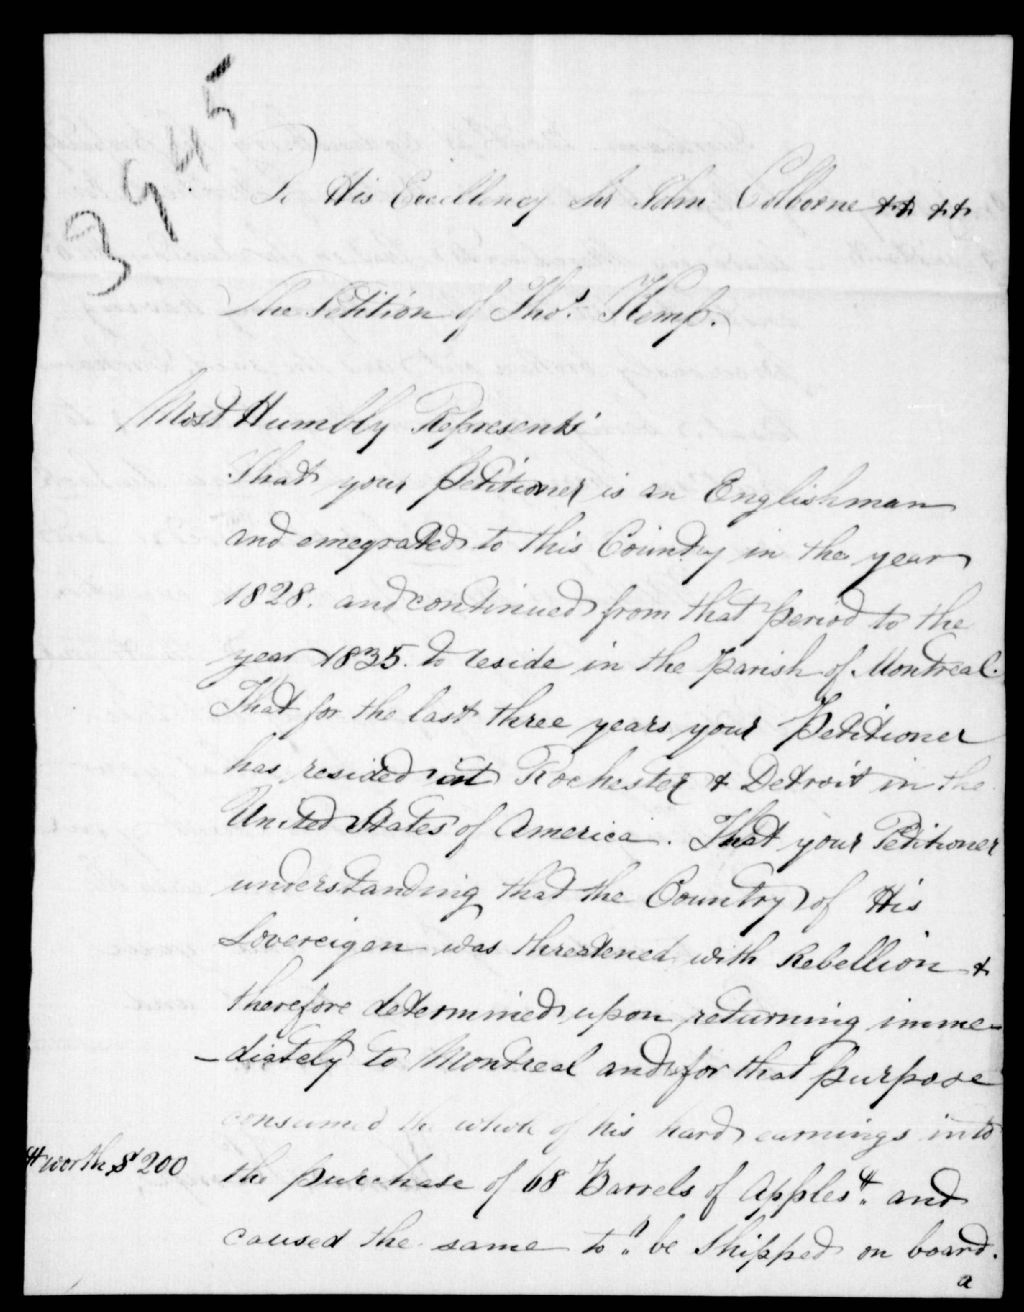 3945
To His Excellency Sir John Colborne &c &c
The Petition of Thos. Kemp.
Most Humbly Represents
That your Petitioner is an Englishman
and emegrated to this Country in the year
1828. and continued from that period to the
year 1835. to reside in the parish of Montreal.
That for the last three years your Petitioner
has resided at Rochester & Detroit in the
United States of America. That your Petitioner
understanding that the Country of His
Sovereign was threatened with Rebellion &
therefore determined upon returning imme-
-diately to Montreal and for that purpose
consumed the whole of his hard earnings into
# worth $200
the purchase of 68 Barrels of Apples # and
caused the same to be Shipped on board.
a